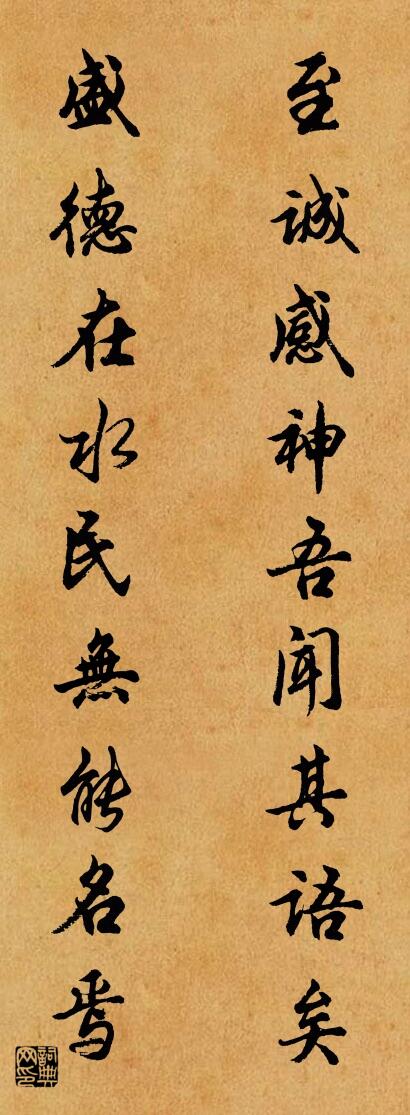 至誠感神吾聞其語矣
盛德在水民無能名焉
詞典
网印